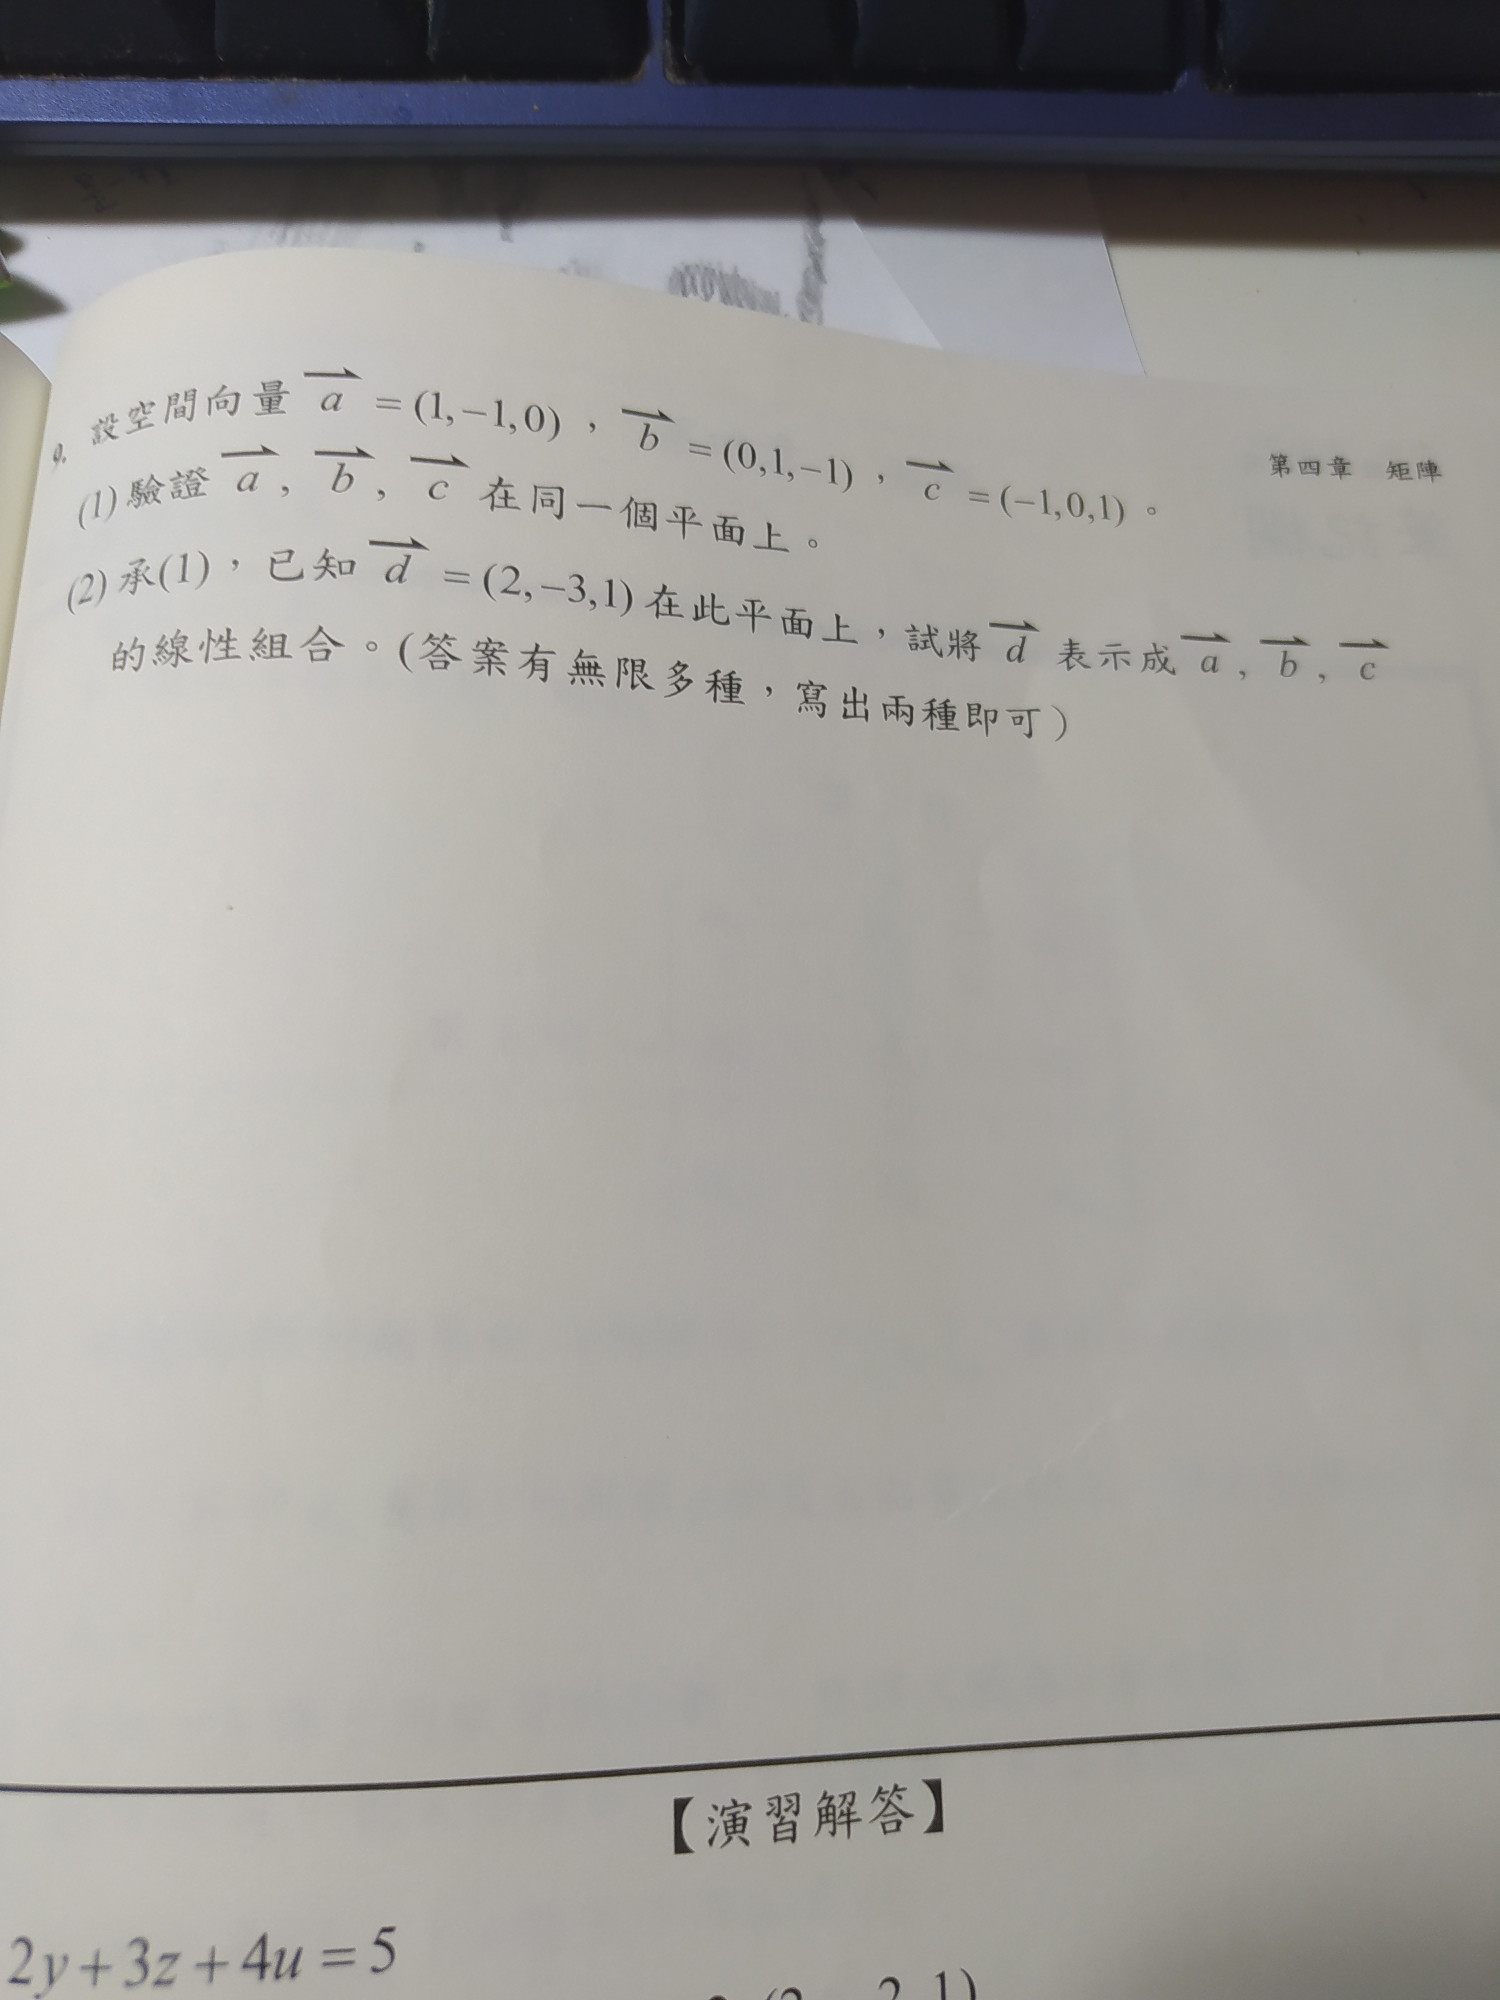 第四章 矩陣
9. 設空間向量 a⃑ = (1, −1, 0) ， b⃑ = (0,1, −1) ， c⃑ = (−1,0,1) 。
(1) 驗證 a⃑ , b⃑ , c⃑ 在同一個平面上。
(2) 承(1)，已知 d⃑ = (2, −3,1) 在此平面上，試將 d⃑ 表示成 a⃑ , b⃑ , c⃑
的線性組合。(答案有無限多種，寫出兩種即可)
【演習解答】
2y + 3z + 4u = 5